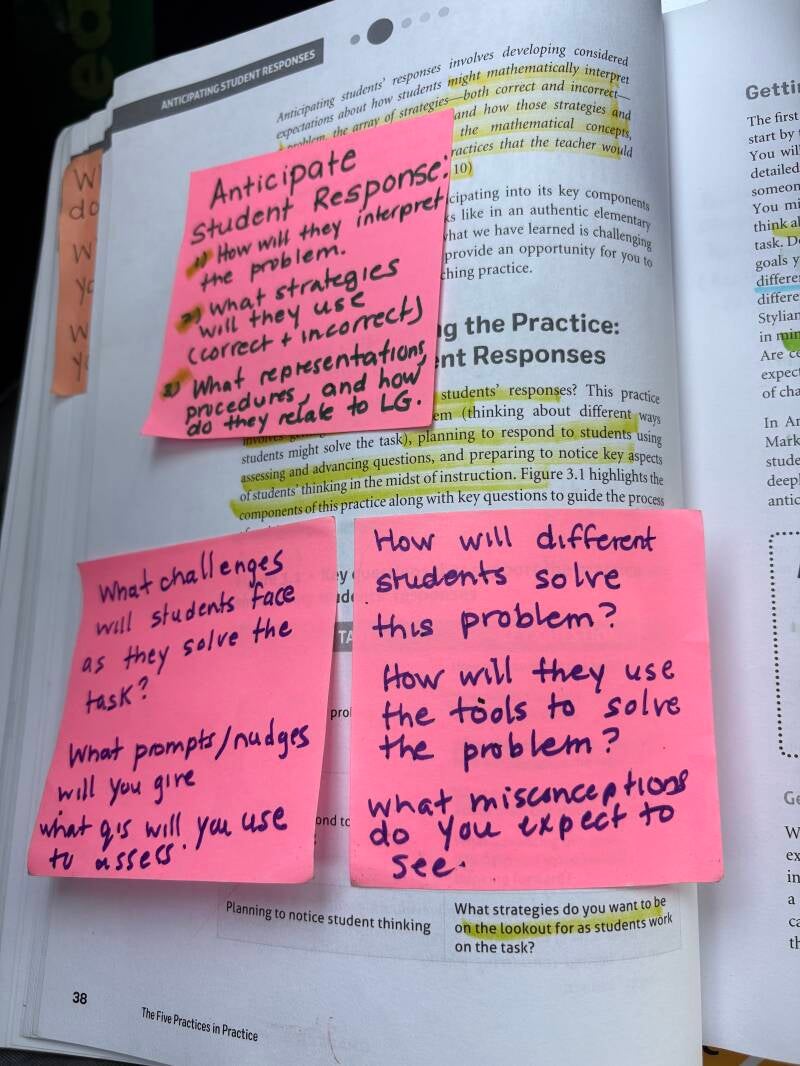 ANTICIPATING STUDENT RESPONSES
Anticipating students' responses involves developing considered
expectations about how students might mathematically interpret
problem, the array of strategies—both correct and incorrect—
and how those strategies and
the mathematical concepts,
practices that the teacher would
10)
Anticipate
Student Response:
1) How will they interpret
the problem.
2) What strategies
will they use
(correct + incorrect)
3) What representations,
procedures, and how
do they relate to LG.
cipating into its key components
s like in an authentic elementary
hat we have learned is challenging
provide an opportunity for you to
ching practice.
g the Practice:
nt Responses
students' responses? This practice
em (thinking about different ways
students might solve the task), planning to respond to students using
assessing and advancing questions, and preparing to notice key aspects
of students' thinking in the midst of instruction. Figure 3.1 highlights the
components of this practice along with key questions to guide the process
What challenges
will students face
as they solve the
task?
What prompts/nudges
will you give
what q's will you use
to assess.
How will different
students solve
this problem?
How will they use
the tools to solve
the problem?
what misconceptions
do you expect to
see.
Planning to notice student thinking
What strategies do you want to be
on the lookout for as students work
on the task?
38
The Five Practices in Practice
W
do
W
yo
W
y
Getti
The first
start by
You will
detailed
someon
You mi
think al
task. Do
goals y
differe
differe
Stylian
in min
Are co
expect
of cha
In An
Mark
stude
deepl
antic
Ge
W
ex
in
a
ca
th